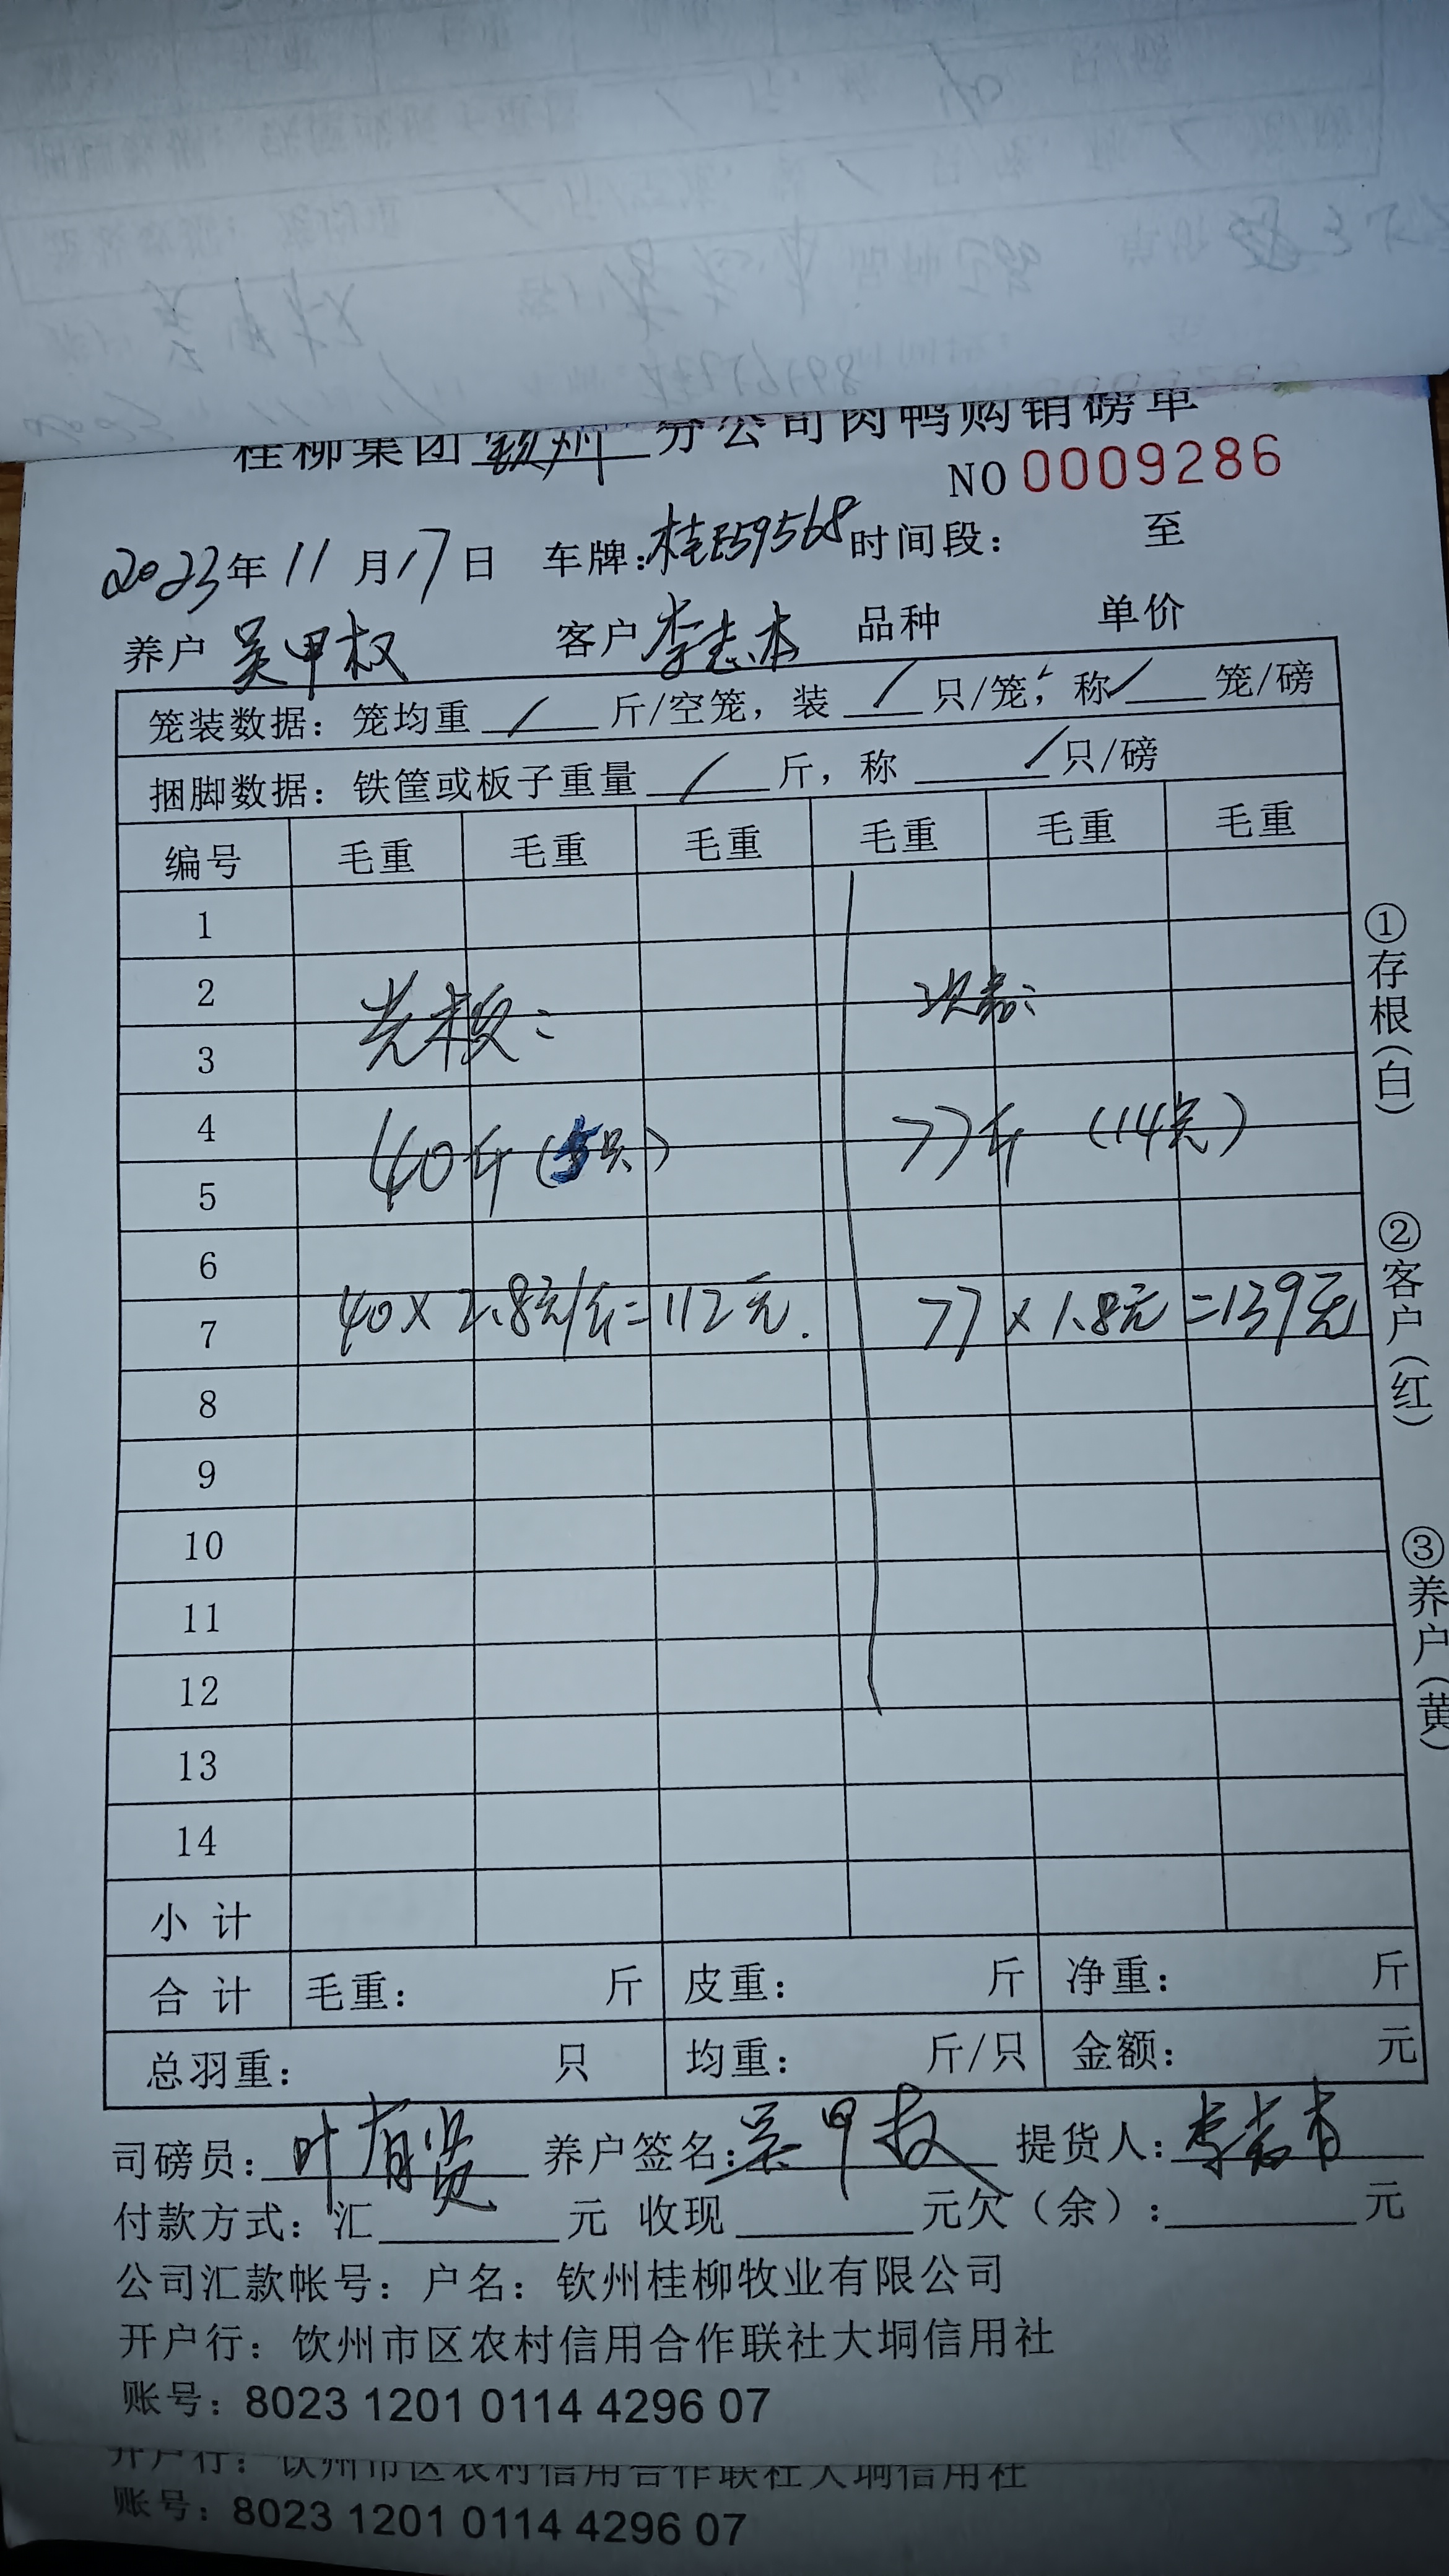 桂柳集团钦州分公司肉鸭购销磅单
NO 0009286
2023年11月17日 车牌:桂E59568 时间段: 至
养户 吴甲权 客户 李志本 品种 单价
笼装数据: 笼均重 / 斤/空笼, 装 / 只/笼, 称 / 笼/磅
捆脚数据: 铁筐或板子重量 / 斤, 称 / 只/磅
编号 毛重 毛重 毛重 毛重 毛重 毛重
1
2
3
光板: 次品:
4
5
40斤(5只) 77斤 (14只)
6
7
40×2.8元/斤=112元. 77×1.8元=139元
8
9
10
11
12
13
14
小 计
合 计 毛重: 斤 皮重: 斤 净重: 斤
总羽重: 只 均重: 斤/只 金额: 元
司磅员: 叶有贤 养户签名: 吴甲权 提货人: 李志本
付款方式: 汇 元 收现 元欠(余): 元
公司汇款帐号: 户名: 钦州桂柳牧业有限公司
开户行: 钦州市区农村信用合作联社大垌信用社
账号: 8023 1201 0114 4296 07
开户行: 钦州市区农村信用合作联社大垌信用社
账号: 8023 1201 0114 4296 07
①存根(白)
②客户(红)
③养户(黄)